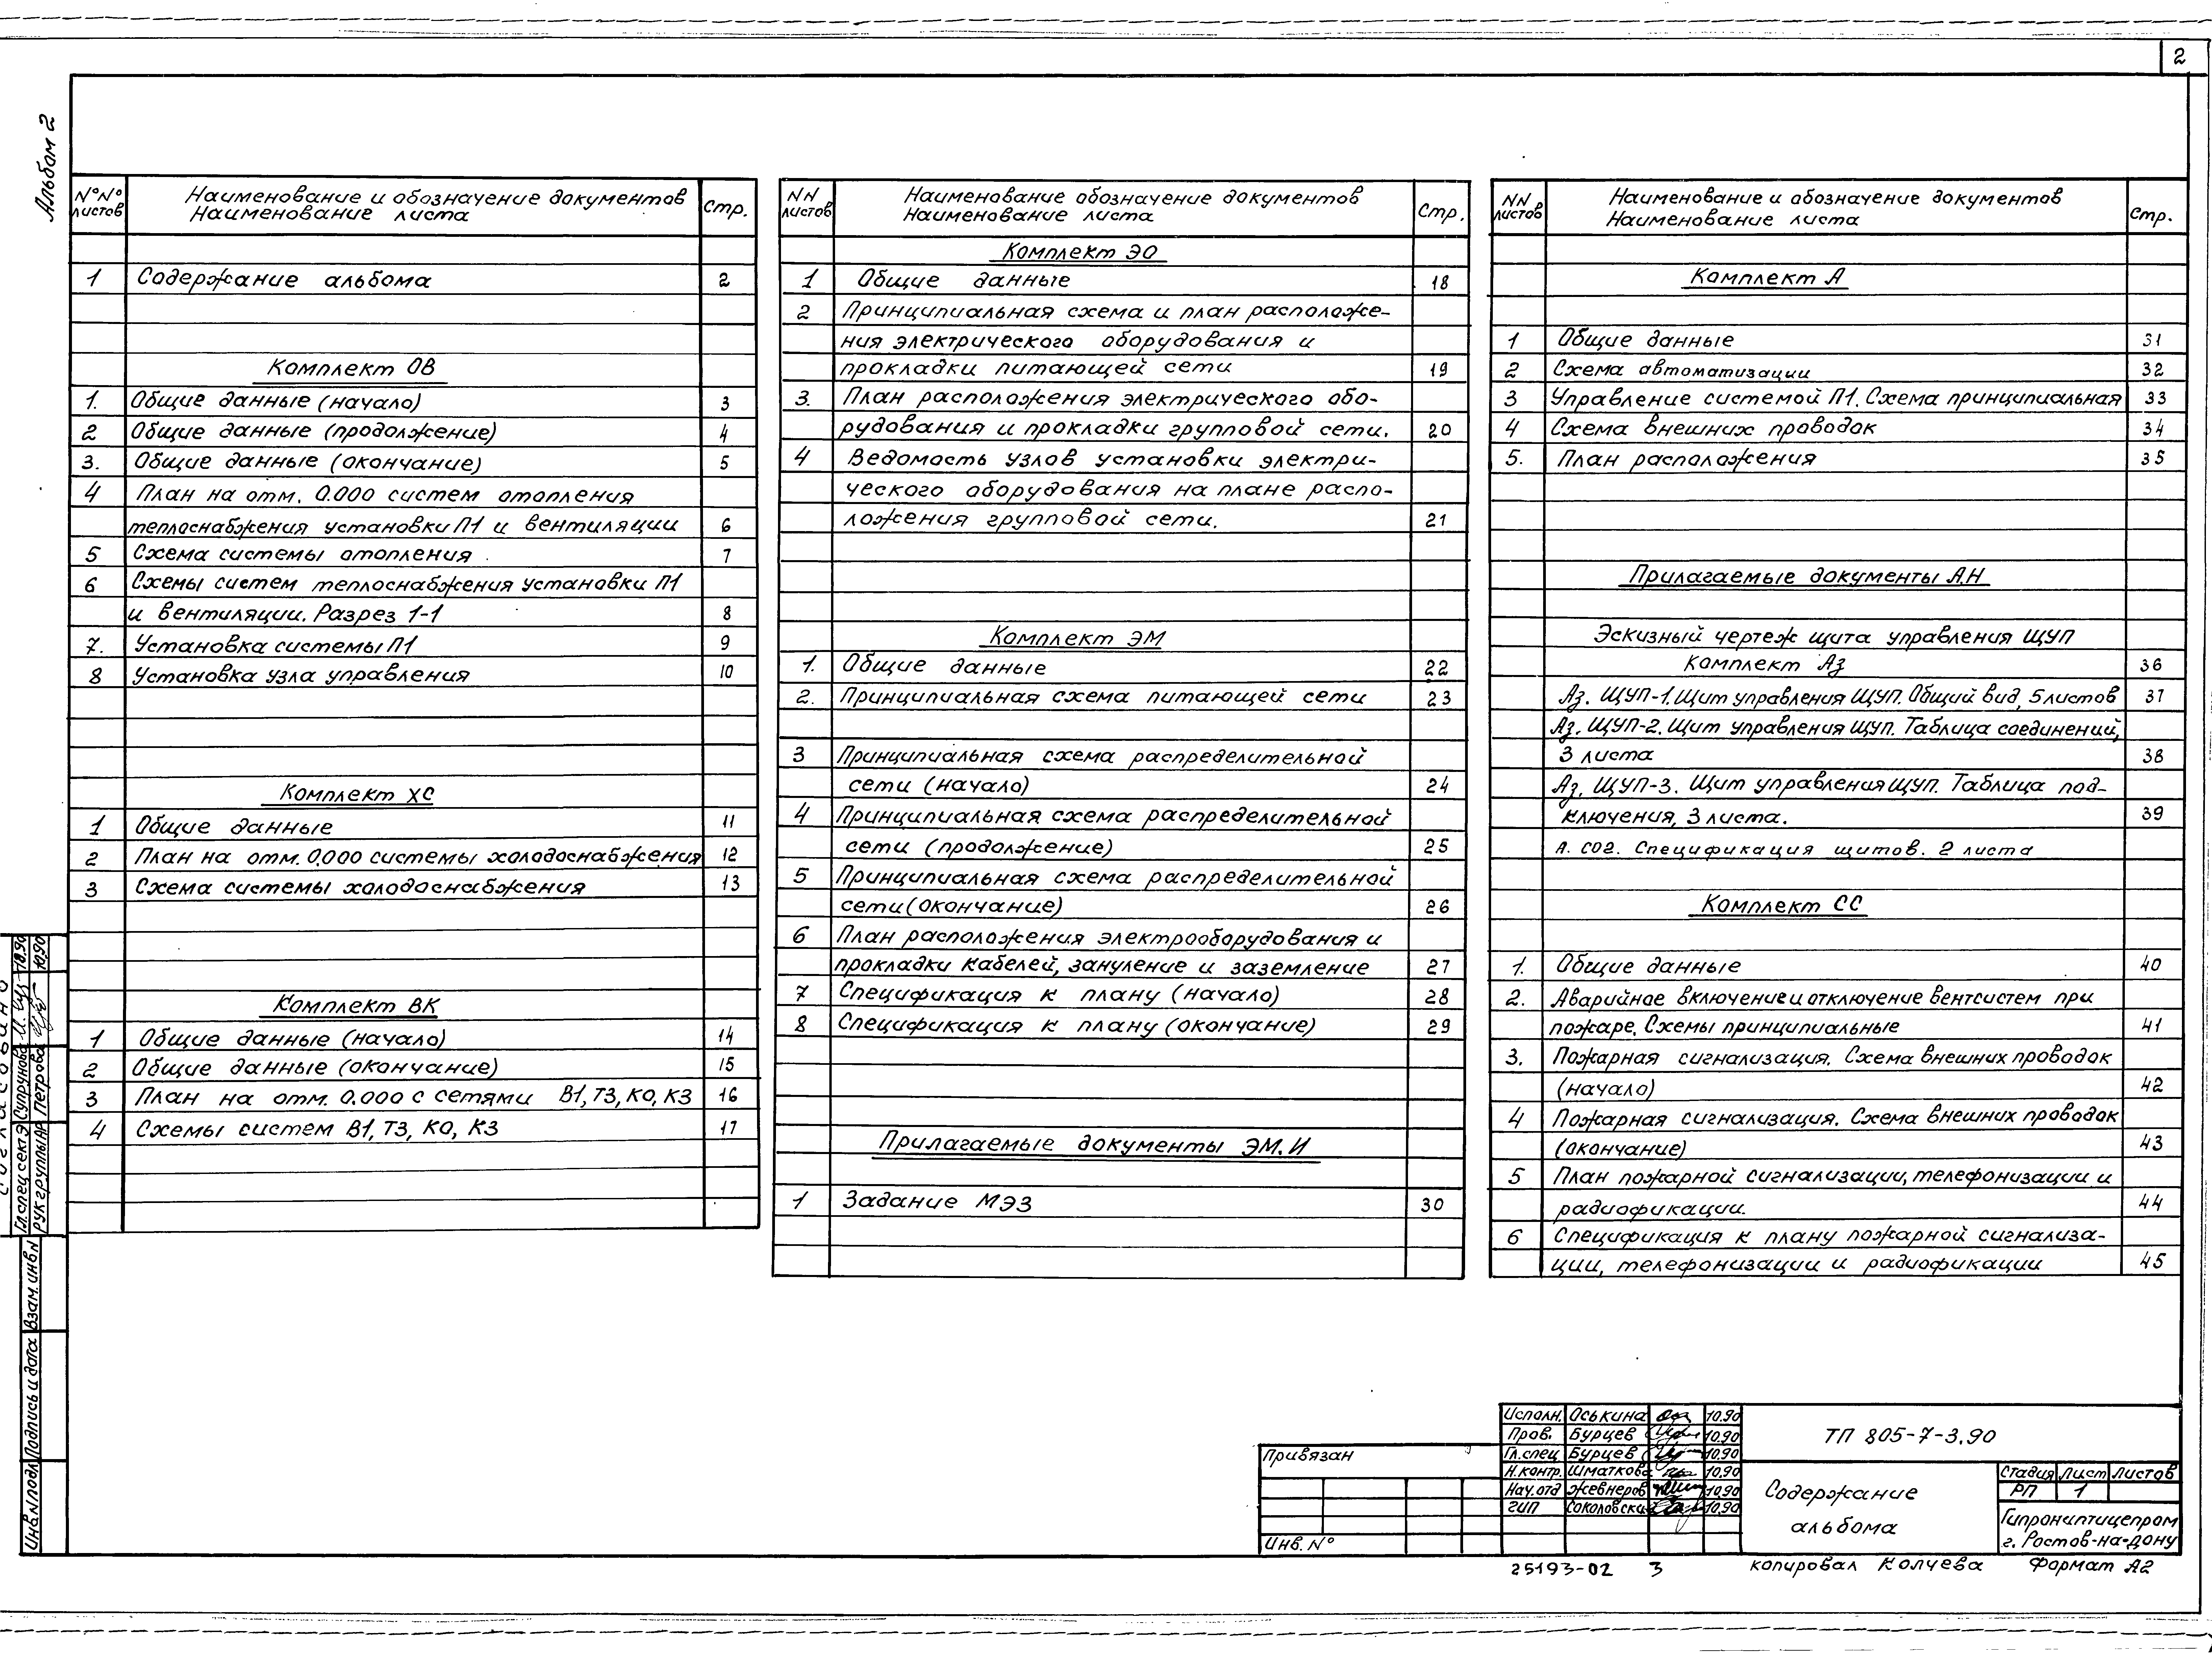 2
Альбом 2
N°N° листов
Наименование и обозначение документов
Наименование листа
Стр.
1 Содержание альбома 2
Комплект ОВ
1. Общие данные (начало) 3
2 Общие данные (продолжение) 4
3. Общие данные (окончание) 5
4 План на отм. 0.000 систем отопления
теплоснабжения установки П1 и вентиляции 6
5 Схема системы отопления 7
6 Схемы систем теплоснабжения установки П1
и вентиляции. Разрез 1-1 8
7. Установка системы П1 9
8 Установка узла управления 10
Комплект ХС
1 Общие данные 11
2 План на отм. 0.000 системы холодоснабжения 12
3 Схема системы холодоснабжения 13
Комплект ВК
1 Общие данные (начало) 14
2 Общие данные (окончание) 15
3 План на отм. 0.000 с сетями В1, Т3, К0, К3 16
4 Схемы систем В1, Т3, К0, К3 17
NN листов
Наименование обозначение документов
Наименование листа
Стр.
Комплект ЭО
1 Общие данные 18
2 Принципиальная схема и план расположе-
ния электрического оборудования и
прокладки питающей сети 19
3. План расположения электрического обо-
рудования и прокладки групповой сети. 20
4 Ведомость узлов установки электри-
ческого оборудования на плане распо-
ложения групповой сети. 21
Комплект ЭМ
1. Общие данные 22
2. Принципиальная схема питающей сети 23
3 Принципиальная схема распределительной
сети (начало) 24
4 Принципиальная схема распределительной
сети (продолжение) 25
5 Принципиальная схема распределительной
сети (окончание) 26
6 План расположения электрооборудования и
прокладки кабелей, зануление и заземление 27
7 Спецификация к плану (начало) 28
8 Спецификация к плану (окончание) 29
Прилагаемые документы ЭМ.И
1 Задание МЭЗ 30
NN листов
Наименование и обозначение документов
Наименование листа
Стр.
Комплект А
1 Общие данные 31
2 Схема автоматизации 32
3 Управление системой П1. Схема принципиальная 33
4 Схема внешних проводок 34
5. План расположения 35
Прилагаемые документы А.Н
Эскизный чертеж щита управления ЩУП
Комплект Аз 36
Аз. ЩУП-1. Щит управления ЩУП. Общий вид, 5 листов 37
Аз. ЩУП-2. Щит управления ЩУП. Таблица соединений,
3 листа 38
Аз. ЩУП-3. Щит управления ЩУП. Таблица под-
ключения, 3 листа. 39
А. СО2. Спецификация щитов. 2 листа
Комплект СС
1. Общие данные 40
2. Аварийное включение и отключение вентсистем при
пожаре. Схемы принципиальные 41
3. Пожарная сигнализация. Схема внешних проводок
(начало) 42
4 Пожарная сигнализация. Схема внешних проводок
(окончание) 43
5 План пожарной сигнализации, телефонизации и
радиофикации. 44
6 Спецификация к плану пожарной сигнализа-
ции, телефонизации и радиофикации 45
Согласовано
Гл.спец.сек.Э Супрунова 10.90
Рук.группы АР Петрова 10.90
Взам. инв N
Подпись и дата
Инв. N подл
Привязан
Инв. N°
Исполн. Оськина 10.90
Пров. Бурцев 10.90
Гл.спец Бурцев 10.90
Н.контр. Шматкова 10.90
Нач.отд Жевнеров 10.90
ГИП Соколовски 10.90
ТП 805-7-3.90
Содержание
альбома
Стадия Лист Листов
РП 1
Гипрониптицепром
г. Ростов-на-Дону
25193-02 3
копировал Колчева Формат А2